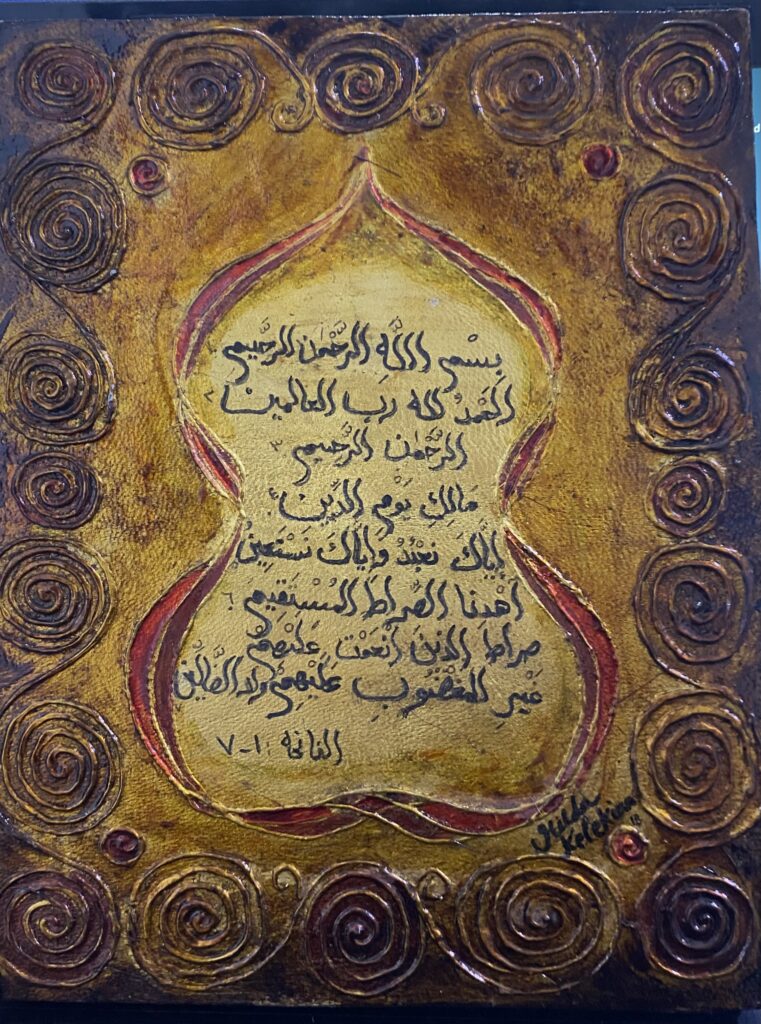 بِسْمِ اللَّهِ الرَّحْمَٰنِ الرَّحِيمِ ١
الحَمْدُ لله رَبِ العالمين ٢
الرَّحْمَٰن الرَّحِيم ٣
مَالِكِ يَوْمِ الدِّين ٤
إِيَّاكَ نَعْبُدُ وَإِيَّاكَ نَسْتَعِينُ
اهْدِنَا الصِّرَاطَ المُسْتَقِيم ٦
صِراط الذينَ أَنْعَمْتَ عَلَيْهِمْ
غَيْرِ المَغْضُوبِ عَلَيْهِمْ ولا الضَّالِّين
الفاتحة ١-٧
Kelekian